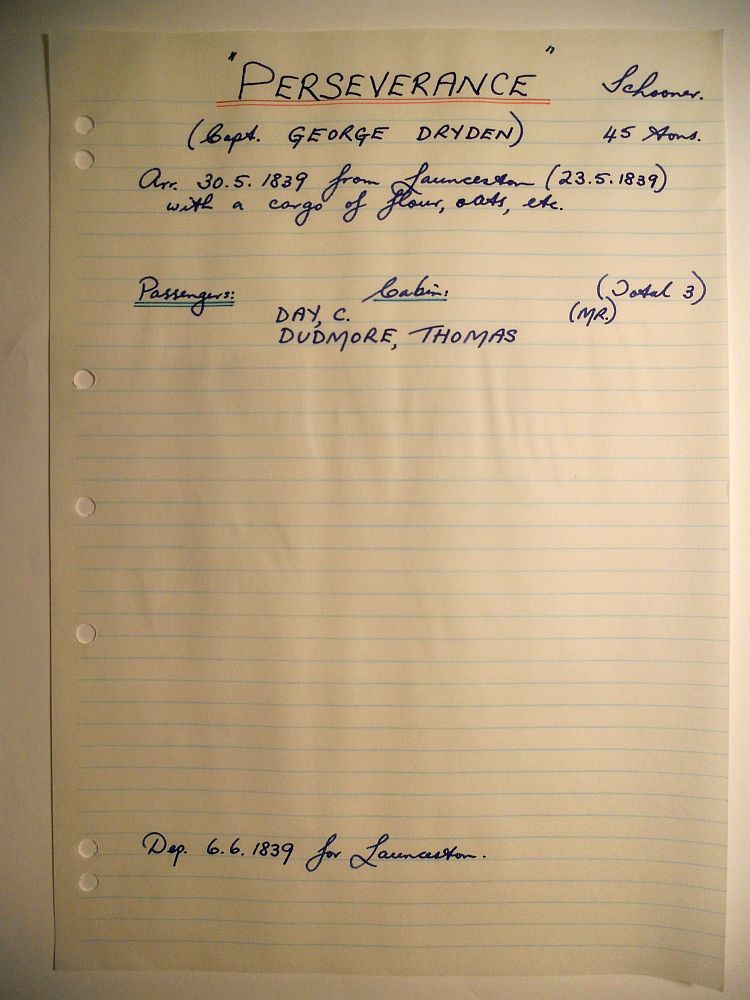 "PERSEVERANCE" Schooner.
(Capt. GEORGE DRYDEN) 45 tons.
Arr. 30.5.1839 from Launceston (23.5.1839)
with a cargo of flour, oats, etc.
Passengers: Cabin: (Total 3)
DAY, C. (MR.)
DUDMORE, THOMAS
Dep. 6.6.1839 for Launceston.